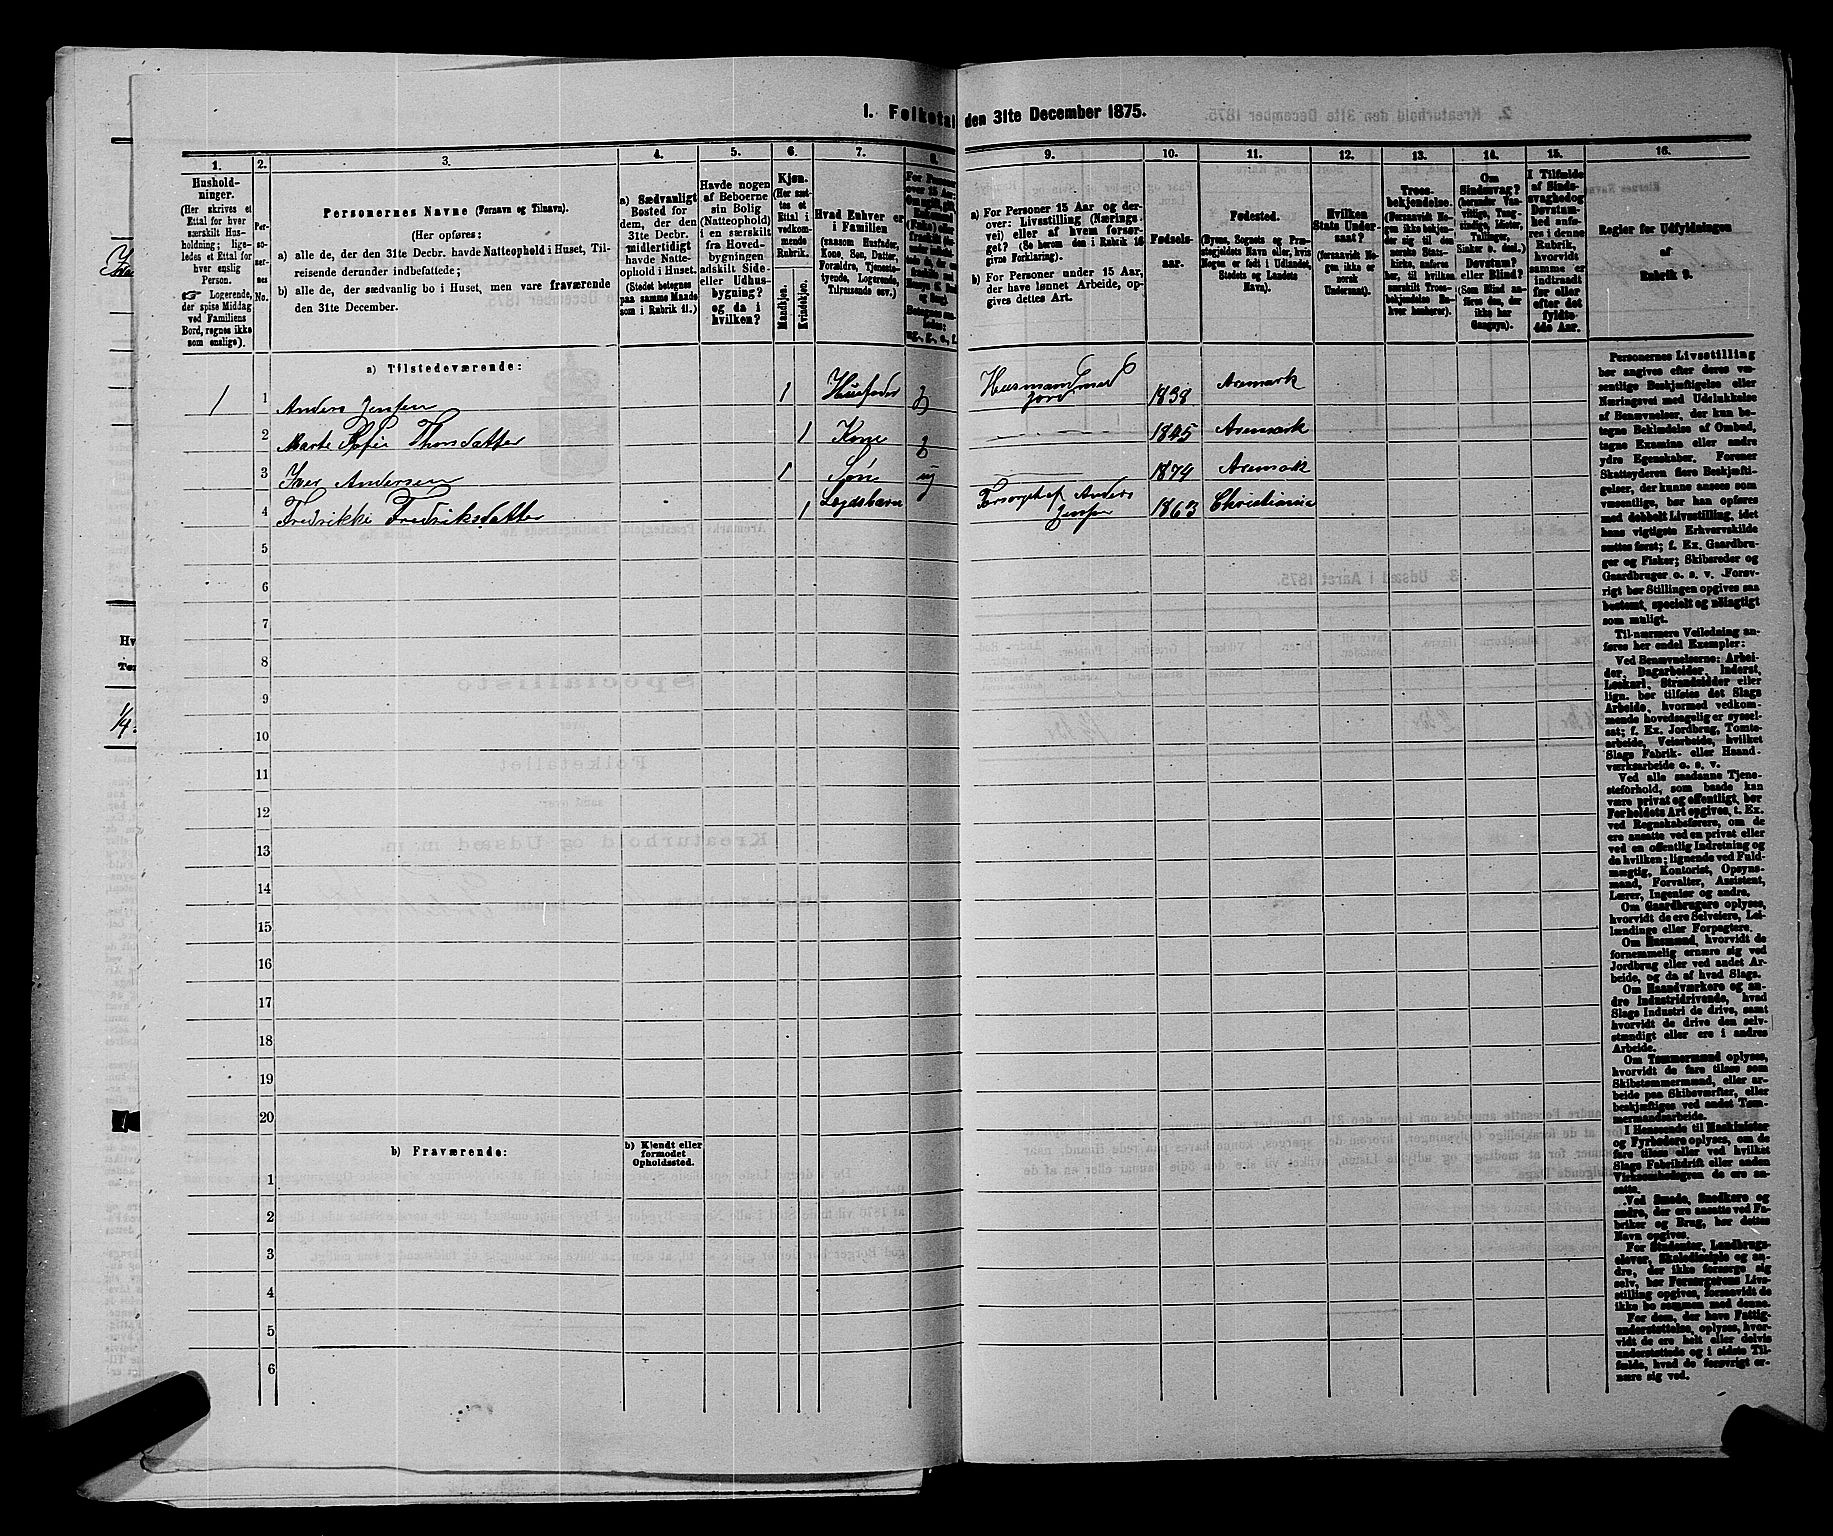 1. Folketal den 31te December 1875.
1.
2.
3.
4.
5.
6.
7.
8.
9.
10.
11.
12.
13.
14.
15.
16.
Hushold-
ninger.
(Her skrives et
Ettal for hver
særskilt Hus-
holdning; lige-
ledes et Ettal for
hver enslig
Person.
☞ Logerende,
der spise Middag
ved Familiens
Bord, regnes ikke
som enslige).
Per-
so-
ner-
nes
No.
Personernes Navne (Fornavn og Tilnavn).
(Her opføres:
a) alle de, der den 31te Decbr. havde Natteophold i Huset, Til-
reisende derunder indbefattede;
b) alle de, der sædvanlig bo i Huset, men vare fraværende
den 31te December.
a) Sædvanligt
Bosted for
dem, der den
31te Decbr.
midlertidigt
havde Natte-
ophold i Huset.
(Stedet betegnes
paa samme Maade
som i Rubrik 11.)
Havde nogen
af Beboerne
sin Bolig
(Natteophold)
i en særskilt
fra Hoved-
bygningen
adskilt Side-
eller Udhus-
bygning?
og da i
hvilken?
Kjøn.
(Her sæt-
tes et
Ettal i
vedkom-
mende
Rubrik.
Mandkjøn.
Kvindekjøn.
Hvad Enhver er
i Familien
(saasom Husfader,
Kone, Søn, Datter,
Forældre, Tjeneste-
tyende, Logerende,
Tilreisende osv.)
For Personer
over 15 Aar:
ug., g., e., f.
a) For Personer 15 Aar og der-
over: Livsstilling (Nærings-
vei) eller af hvem forsør-
get? (Se herom den i Rubrik 16
givne Forklaring).
b) For Personer under 15 Aar,
der have lønnet Arbeide, op-
gives dettes Art.
Fødsels-
aar.
Fødested.
(Byens, Sognets og Præ-
stegjeldets Navn eller, hvis
Nogen er født i Udlandet,
Stedets og Landets
Navn).
Hvilken
Stats Under-
saat?
(forsaavidt No-
gen ikke er
norsk
Undersaat).
Troes-
bekjendelse.
(Forsaavidt No-
gen ikke bekjen-
der sig til den
norske Stats-
kirke, anføres
her, til hvilken
særskilt Troes-
bekjendelse En-
hver henhører).
Om
Sindssvag?
Døvstum?
eller Blind?
(Som Blind an-
føres den, der
ikke har
Gangsyn).
I Tilfælde
af Sinds-
svaghed og
Døvstum-
hed anfø-
res i denne
Rubrik,
hvorvidt
samme er
indtraadt
før eller
efter det
fyldte
4de Aar.
Regler for Udfyldningen
af
Rubrik 9.
a) Tilstedeværende:
1 1 Anders Jensen 1 Husfader g Husmand med Jord 1838 Aremark
2 Marte Sofie Thorsdatter 1 Kone g 1845 Aremark
3 Iver Andersen 1 Søn ug 1874 Aremark
4 Fredrikke Fredriksdatter 1 Lægdsbarn Forsørget af Anders Jensen 1863 Christiania
5
6
7
8
9
10
11
12
13
14
15
16
17
18
19
20
b) Fraværende:
b) Kjendt eller
formodet
Opholdssted.
1
2
3
4
5
6
Personernes Livsstilling
bør angives efter deres væ-
sentlige Beskjæftigelse eller
Næringsvei med Udelukkelse
af Benævnelser, der kun be-
tegne Beklædelse af Ombud,
tagne Examina eller andre
ydre Egenskaber. Forener
Skatteyderen flere Beskjæfti-
gelser, der kunne ansees som
væsentlige, bør han opføres
med dobbelt Livsstilling, idet
hans vigtigste Erhvervskilde
sættes først; f. Ex. Gaardbru-
ger og Fisker; Skibsreder og
Gaardbruger o. s. v. Forøv-
rigt bør Stillingen opgives saa
bestemt, specielt og nøiagtigt
som muligt.
Til nærmere Veiledning an-
føres her endel Exempler:
Ved Benævnelserne: Arbei-
der, Dagarbeider, Inderst,
Løskarl, Strandsidder eller
lign. bør tilføies det Slags
Arbeide, hvormed vedkom-
mende hovedsagelig er syssel-
sat; f. Ex. Jordbrug, Tomte-
arbeide, Veiarbeide, hvilket
Slags Fabrik- eller Haand-
værksarbeide o. s. v.
Ved alle saadanne Tjene-
steforhold, som baade kan
være privat og offentligt, bør
Forholdets Art opgives, f. Ex.
ved Regnskabsførere, om de
ere ansatte ved en privat eller
ved en offentlig Indretning og
da hvilken; lignende ved Fuld-
mægtig, Kontorist, Opsyns-
mand, Forvalter, Assistent,
Lærer, Ingeniør og andre.
Om Gaardbrugere oplyses,
hvorvidt de ere Selveiere, Lei-
lændinge eller Forpagtere.
Om Husmænd, hvorvidt de
fornemmelig ernære sig ved
Jordbrug eller ved andet Ar-
beide, og da af hvad Slags.
Om Haandværkere og an-
dre Industridrivende, hvad
Slags Industri de drive, samt
hvorvidt de drive den selv-
stændigt eller ere i andres
Arbeide.
Om Tømmermænd oplyses,
hvorvidt de fare tilsøs som
Skibstømmermænd, eller ar-
beide paa Skibsværfter, eller
beskjæftiges ved andet Tøm-
mermandsarbeide.
I Henseende til Maskinister
og Fyrbødere oplyses, om de
fare tilsøs eller ved hvilket
Slags Fabrikdrift eller anden
Virksomhed de ere an-
satte.
Ved Smede, Snedkere og
andre, der ere ansatte ved Fa-
briker og Brug, bør dettes
Navn opgives.
For Studenter, Landbrugs-
elever, Skoledisciple og an-
dre, der ikke forsørge sig
selv, bør Forsørgerens Livs-
stilling opgives, forsaavidt de
ikke bo sammen med denne.
For dem, der have Fattig-
understøttelse, oplyses, hvor-
vidt de ere helt eller delvis
understøttede og i sidste Til-
fælde, hvad de forøvrigt er-
nære sig ved.